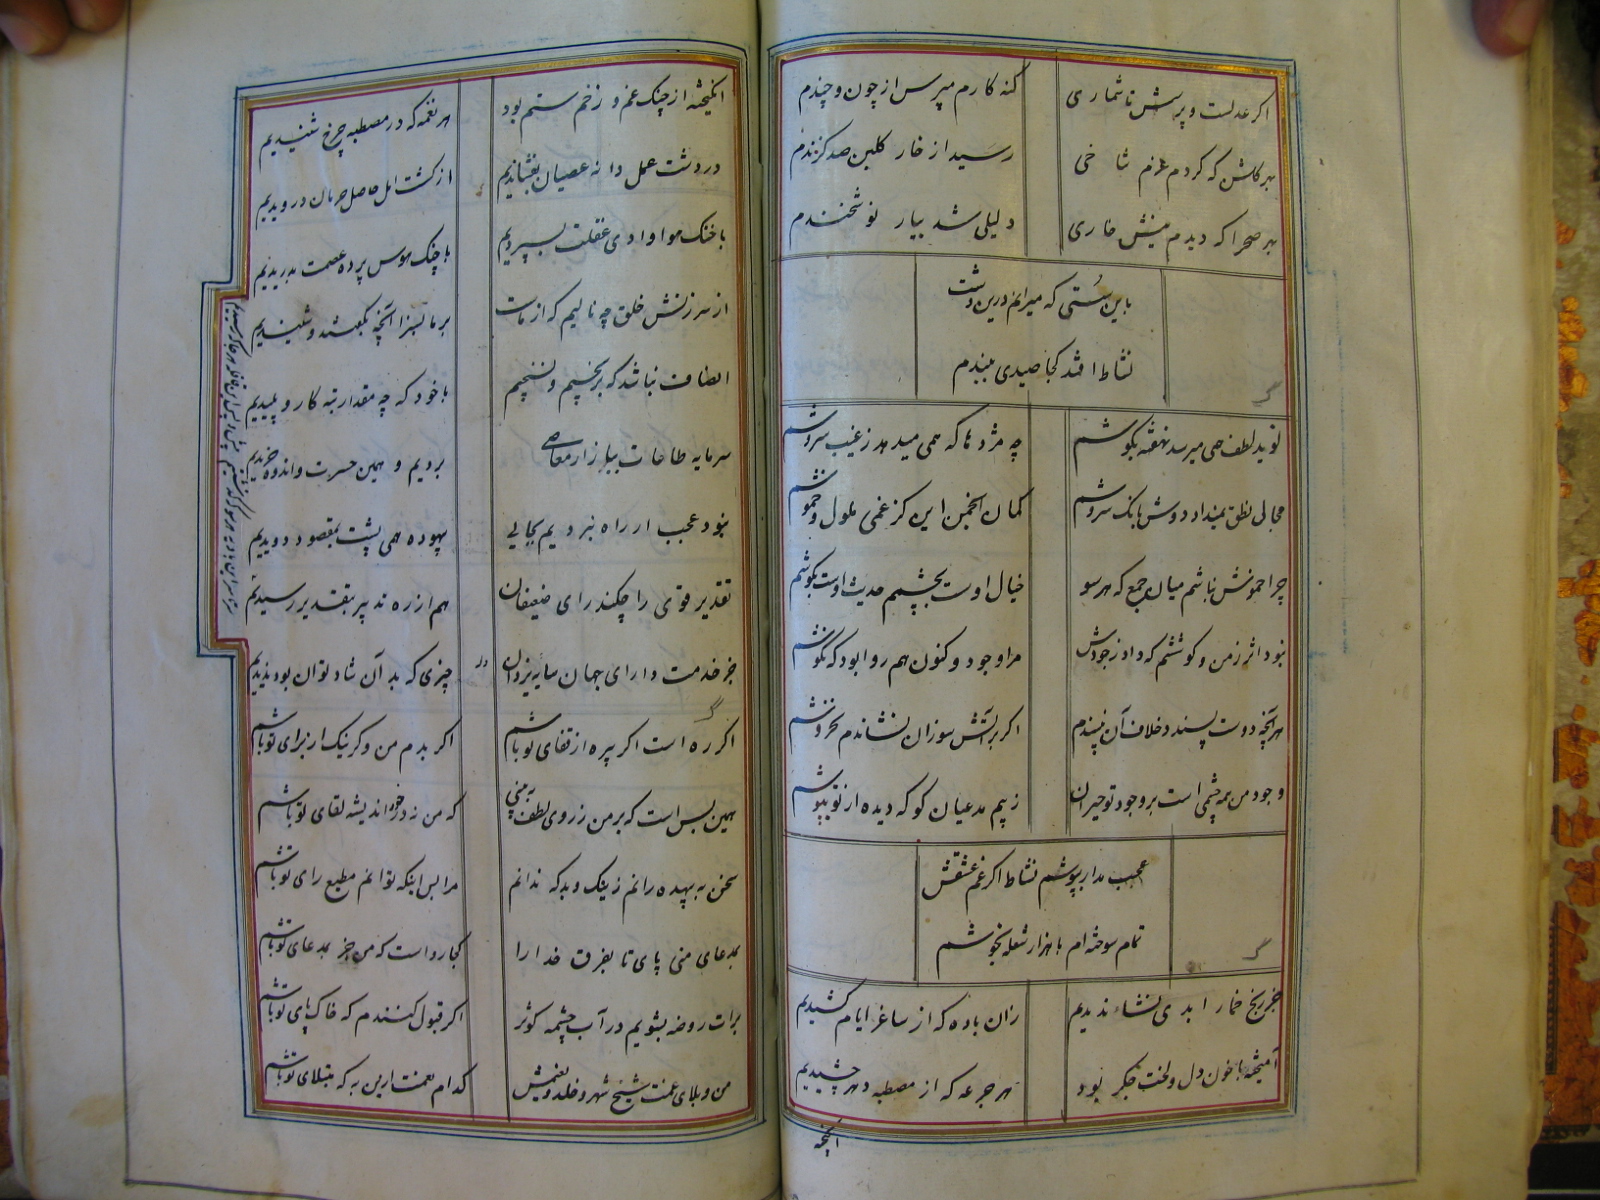 اگر عدلست و پرسش ناشماری
گنه کارم مپرس از چون و چندم
بهر گلشن که کردم عزم شاخی
رسید از خار گلبن صد گزندم
بهر صحرا که دیدم نیش خاری
دلیلی شد بیار نوشخندم
باین سستی که میرانم درین دشت
نشاط افتد کجا صیدی ببندم
نوید لطف همی میرسد نهفته بگوشم
چه مژدها که همی میدهد ز غیب سروشم
مجالی نطق نمیداد دوش بانگ سروشم
گمان انجمن این کز غمی ملول و خموشم
چرا خموش نباشم میان جمع که هر سو
خیال اوست بچشمم حدیث اوست بگوشم
نبود اثر ز من و کوششم که داد ز جودش
مرا وجود و کنون هم روا بود که نکوشم
هر آنچه دوست پسندد خلاف آن نپسندم
اگر بر آتش سوزان نشاندم نخروشم
وجود من همه چشمی است بر وجود تو حیران
ز بیم مدعیان کو که دیده از تو بپوشم
عجب مدار بپوشم نشاط اگر غم عشقش
تمام سوخته ام با هزار شعله بجوشم
جز رنج خمار ابدی نشاء ندیدیم
زان باده که از ساغر ایام کشیدیم
آمیخته با خون دل و لخت جگر بود
هر جرعه که از مصطبه دهر چشیدیم
انگیخته
انگیخته از چنگ غم و زخم ستم بود
هر نغمه که در مصطبه چرخ شنیدیم
در دشت عمل دانه عصیان بفشاندیم
از کشت امل حاصل حرمان درویدیم
با خنگ هوا وادی غفلت بسپردیم
با چنگ هوس پرده عصمت بدریدیم
از سرزنش خلق چه نالیم که از ماست
بر ما بسزا آنچه بگفتند و شنیدیم
انصاف نباشد که برنجیم و نسنجیم
با خود که چه مقدار تبه کار و پلیدیم
سرمایه طاعات ببازار معاصی
بردیم و همین حسرت و اندوه خریدیم
نبود عجب ار راه نبردیم بجایی
بیهوده همی پشت بمقصود دویدیم
تقدیر قوی را چکند رای ضعیفان
هم از ره تدبیر بتقدیر رسیدیم
جز خدمت دارای جهان سایه یزدان
چیزی که بد آن شاد توان بود ندیدیم
اگر ره است اگر بیره از قفای تو باشم
اگر بدم من و گر نیک از برای تو باشم
همین بس است که بر من ز روی لطف ببینی
که من نه در خور اندیشه لقای تو باشم
سخن به بیهده رانم ز نیک و بد که ندانم
مرا بس اینکه توانم مطیع رای تو باشم
بمدعای منی پای تا بفرق خدا را
کجا رواست که من جز بمدعای تو باشم
برات روضه بشویم در آب چشمه کوثر
اگر قبول کنندم که خاک پای تو باشم
من و بلای غمت شیخ شهر و خلد و نعیمش
کدام نعمت ازین به که مبتلای تو باشم